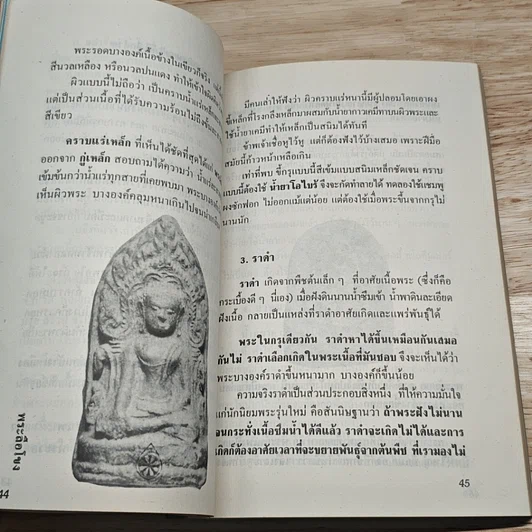 พระรอดบางองค์เนื้อข้างในเขียวก็จริง
สีนวลเหลือง หรือนวลปนแดง ทำให้เข้าใจ
ผิวแบบนี้ไม่ถือว่า เป็นคราบน้ำแร่เหล็ก
แต่เป็นส่วนเนื้อที่ได้รับความร้อนไม่ถึง
สีเขียว
คราบแร่เหล็ก ที่เห็นได้ชัดที่สุดได้แก่
ออกจาก กู่เหล็ก สอบถามได้ความว่า
เข้มข้นกว่าน้ำแร่ทุกสายที่เคยพบมา
เห็นผิวพระ บางองค์คลุมหนาเกินไปจน
พระลือโขง
44
มีคนเล่าให้ฟังว่า ผิวคราบแร่หนานี้มีผู้ปลอมโดยเอาผง
ขี้เหล็กที่โรงกลึงเหล็กมาผสมกับน้ำยากาวเคมีทาบนผิวพระและ
ใช้น้ำยาเคมีทำให้เหล็กเป็นสนิมได้ทันที
ข้าพเจ้าเชื่อหูไว้หู แต่ก็ต้องฟังไว้บ้างเสมอ เพราะฝีมือ
สมัยนี้ก้าวหน้าเหลือเกิน
เท่าที่พบ ขี้กรุแบบนี้สีเข้มแบบสนิมเหล็กชัดเจน คราบ
แบบนี้ต้องใช้ น้ำยาโอโนไรี จึงจะกัดทำลายได้ ทดลองใช้แชมพู
ผงซักฟอก ไม่ออกแม้แต่น้อย แต่ต้องใช้เมื่อพระขึ้นจากกรุไม่
นานนัก
3. ราดำ
ราดำ เกิดจากพืชต้นเล็ก ๆ ที่อาศัยเนื้อพระ (ซึ่งก็คือ
กระเบื้องดี ๆ นี่เอง) เมื่อฝังดินนานน้ำซึมเข้า น้ำพาดินละเอียด
ฝังเนื้อ กลายเป็นแหล่งที่ราดำอาศัยเกิดและแพร่พันธุ์ได้
พระในกรุเดียวกัน ราดำหาได้ขึ้นเหมือนกันเสมอ
กันไม่ ราดำเลือกเกิดในพระเนื้อที่มันชอบ จึงจะเห็นได้ว่า
พระบางองค์ราดำขึ้นหนามาก บางองค์ก็ขึ้นน้อย
ความจริงราดำเป็นส่วนประกอบสิ่งหนึ่ง ที่ให้ความมั่นใจ
แก่นักนิยมพระรุ่นใหม่ คือสันนิษฐานว่า ถ้าพระฝังไม่นาน
จนกระทั่งเนื้อซึมน้ำได้ดีแล้ว ราดำจะเกิดไม่ได้และการ
เกิดก็ต้องอาศัยเวลาที่จะขยายพันธุ์จากต้นพืช ที่เรามองไม่
45